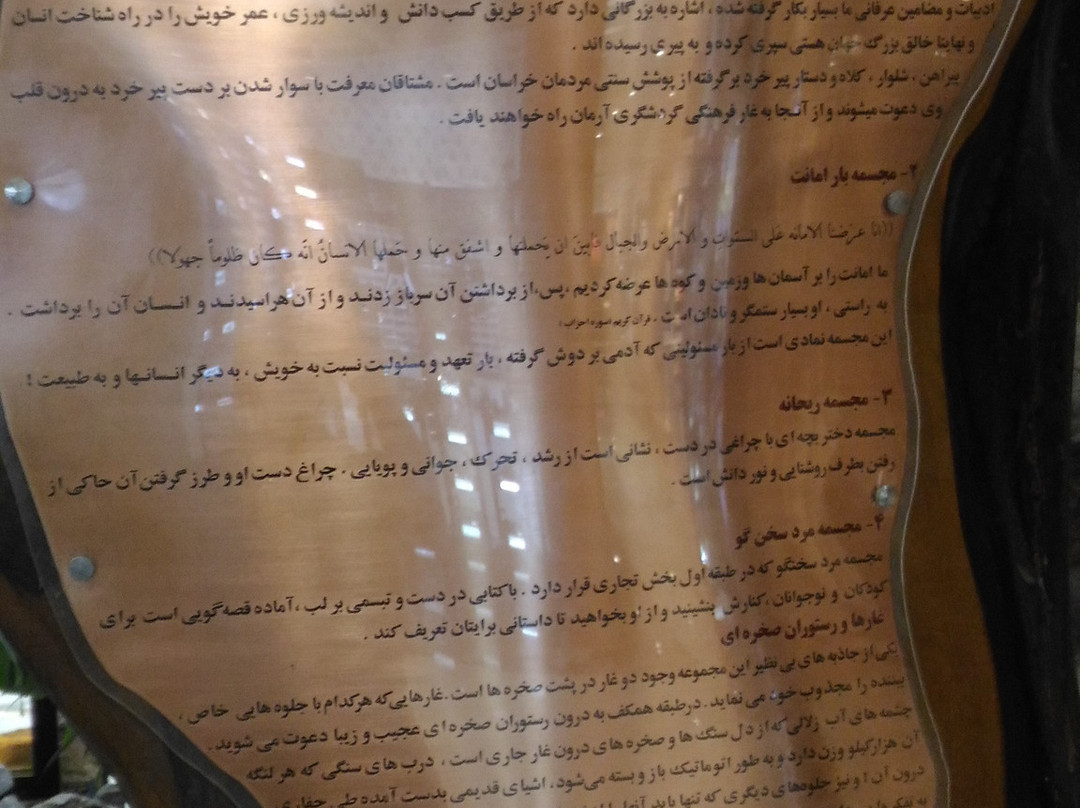 ادبیات و مضامین عرفانی ما بسیار بکار گرفته شده ، اشاره به بزرگانی دارد که از طریق کسب دانش و اندیشه ورزی ، عمر خویش را در راه شناخت انسان
و نهایتا خالق بزرگ جهان هستی سپری کرده و به پیری رسیده اند .
پیراهن ، شلوار ، کلاه و دستار پیر خرد برگرفته از پوشش سنتی مردمان خراسان است . مشتاقان معرفت با سوار شدن بر دست پیر خرد به درون قلب
وی دعوت میشوند و از آنجا به غار فرهنگی گردشگری آرمان راه خواهند یافت .
۲- مجسمه بار امانت
((انّا عرضنا الامانه علی السموات و الارض والجبال فابین ان یحملنها و اشفقن منها و حملها الانسانُ انّه کان ظلوماً جهولا))
ما امانت را بر آسمان ها وزمین و کوه ها عرضه کردیم ،پس،از برداشتن آن سرباز زدند و از آن هراسیدند و انسان آن را برداشت .
به راستی ، او بسیار ستمگر و نادان است . قرآن کریم (سوره احزاب)
این مجسمه نمادی است از بار مسئولیتی که آدمی بر دوش گرفته ، بار تعهد و مسئولیت نسبت به خویش ، به دیگر انسانها و به طبیعت !
۳- مجسمه ریحانه
مجسمه دختر بچه ای با چراغی در دست ، نشانی است از رشد ، تحرک ، جوانی و پویایی . چراغ دست او و طرز گرفتن آن حاکی از
رفتن بطرف روشنایی و نور دانش است .
۴- مجسمه مرد سخن گو
مجسمه مرد سخنگو که در طبقه اول بخش تجاری قرار دارد . باکتابی در دست و تبسمی بر لب ،آماده قصه گویی است برای
کودکان و نوجوانان ،کنارش بنشینید و از او بخواهید تا داستانی برایتان تعریف کند .
غارها و رستوران صخره ای
یکی از جاذبه های بی نظیر این مجموعه وجود دو غار در پشت صخره ها است .غارهایی که هرکدام با جلوه هایی خاص ،
بیننده را مجذوب خود می نماید . درطبقه همکف به درون رستوران صخره ای عجیب و زیبا دعوت می شوید .
چشمه های آب زلالی که از دل سنگ ها و صخره های درون غار جاری است ، درب های سنگی که هر لنگه
آن هزارکیلو وزن دارد و به طور اتوماتیک باز و بسته می‌شود، اشیای قدیمی بدست آمده طی حفاری
درون آن ! و نیز جلوه‌های دیگری که تنها باید آنها را